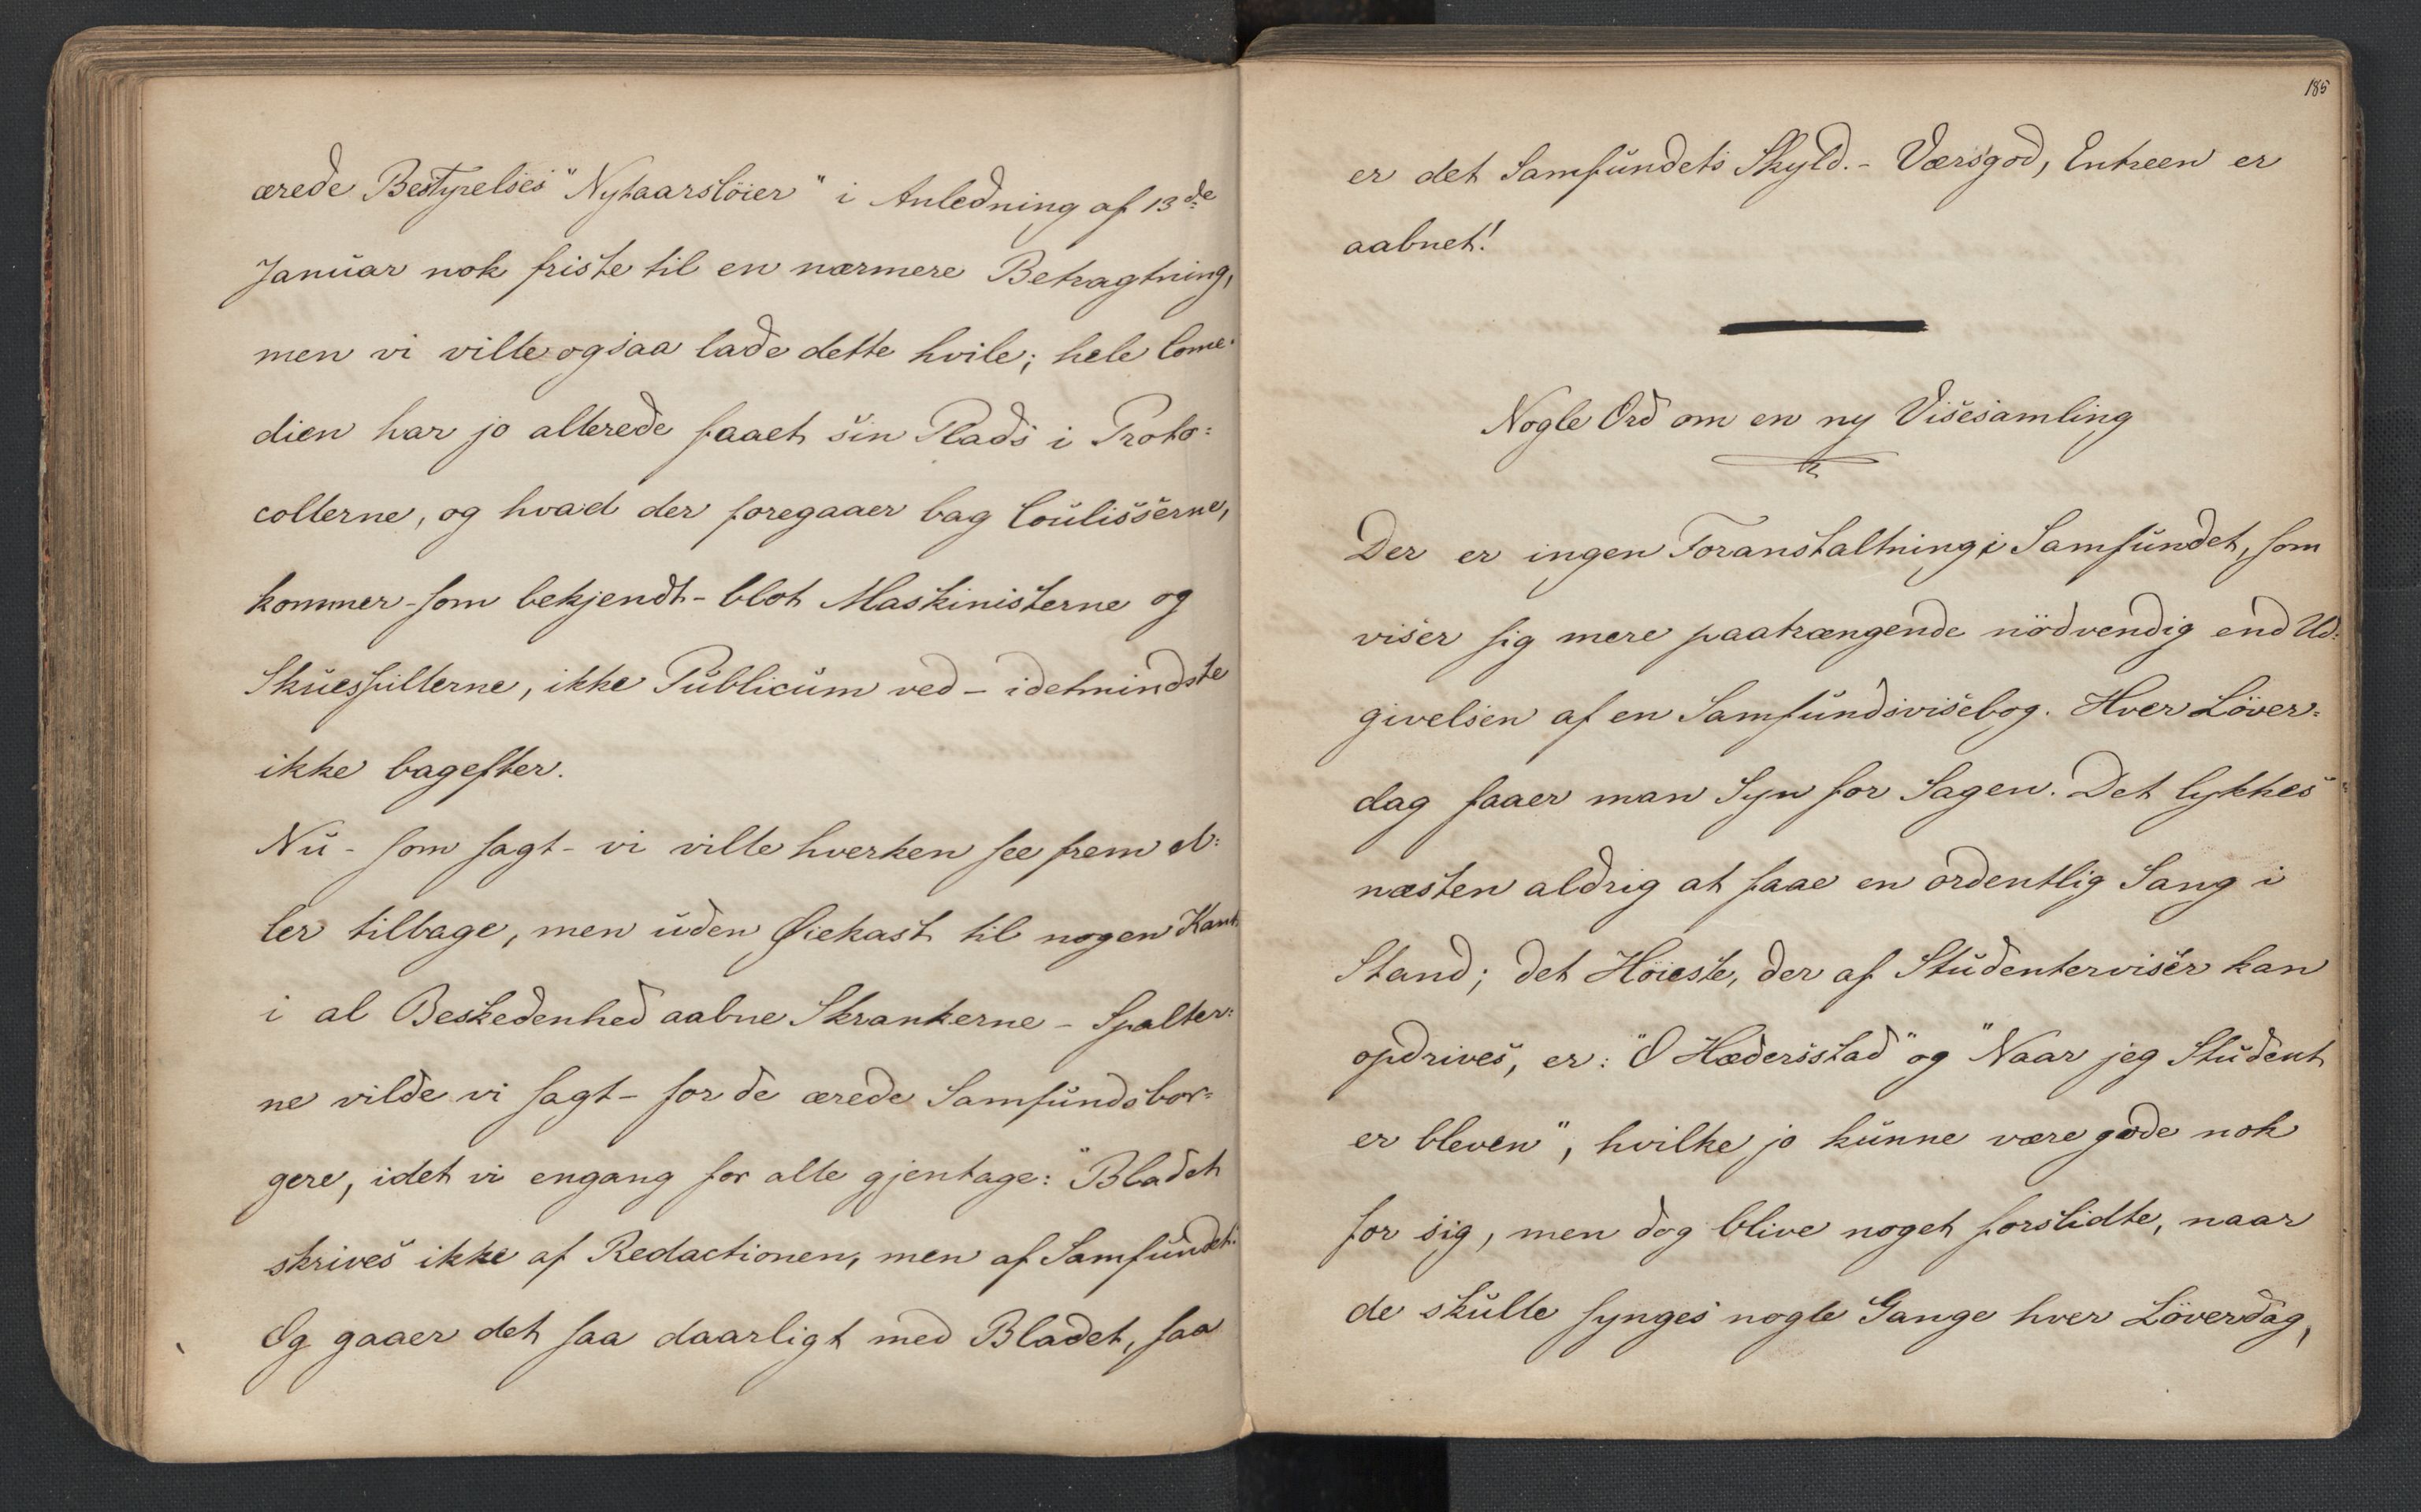 ærede Bestyrelses "Nytaarsløier" i Anledning af 13de
Januar nok friste til en nærmere Betragtning,
men vi ville ogsaa lade dette hvile; hele Come-
dien har jo allerede faaet sin Plads i Proto=
collerne, og hvad der foregaaer bag Coulisserne,
kommer - som bekjendt - blot Maskinisterne og
Skuespillerne, ikke Publicum ved - idetmindste
ikke bagefter.
Nu - som sagt - vi ville hverken see frem el=
ler tilbage, men uden Øiekast til nogen Kant
i al Beskedenhed aabne Skrankerne - Spalter=
ne vilde vi sagt - for de ærede Samfundsbor=
gere, idet vi engang for alle gjentage: "Bladet
skrives ikke af Redactionen, men af Samfundet.
Og gaaer det saa daarligt med Bladet, saa
185
er det Samfundets Skyld. - Værsgod, Entreen er
aabnet!
Nogle Ord om en ny Visesamling
Der er ingen Foranstaltning i Samfundet, som
viser sig mere paatrængende nödvendig end Ud=
givelsen af en Samfundsvisebog. Hver Löver=
dag faaer man Syn for Sagen. Det lykkes
næsten aldrig at faae en ordentlig Sang i
Stand; det Höieste, der af Studenterviser kan
opdrives, er: "O Hædersstad" og "Naar jeg Student
er bleven", hvilke jo kunne være gode nok
for sig, men dog blive noget forslidte, naar
de skulle synges nogle Gange hver Löverdag,